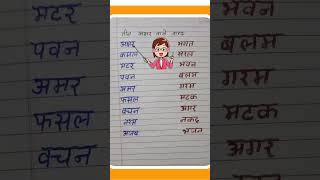 तीन अक्षर वाले शब्द
भगत
कमल सरल
मटर भवन
पवन बलम
अमर गरम
फसल मटक
वचन अगर
नकद
अजब भजन
मटर
पवन
अमर
फसल
वचन
भवन
बलम
गरम
मटक
अगर